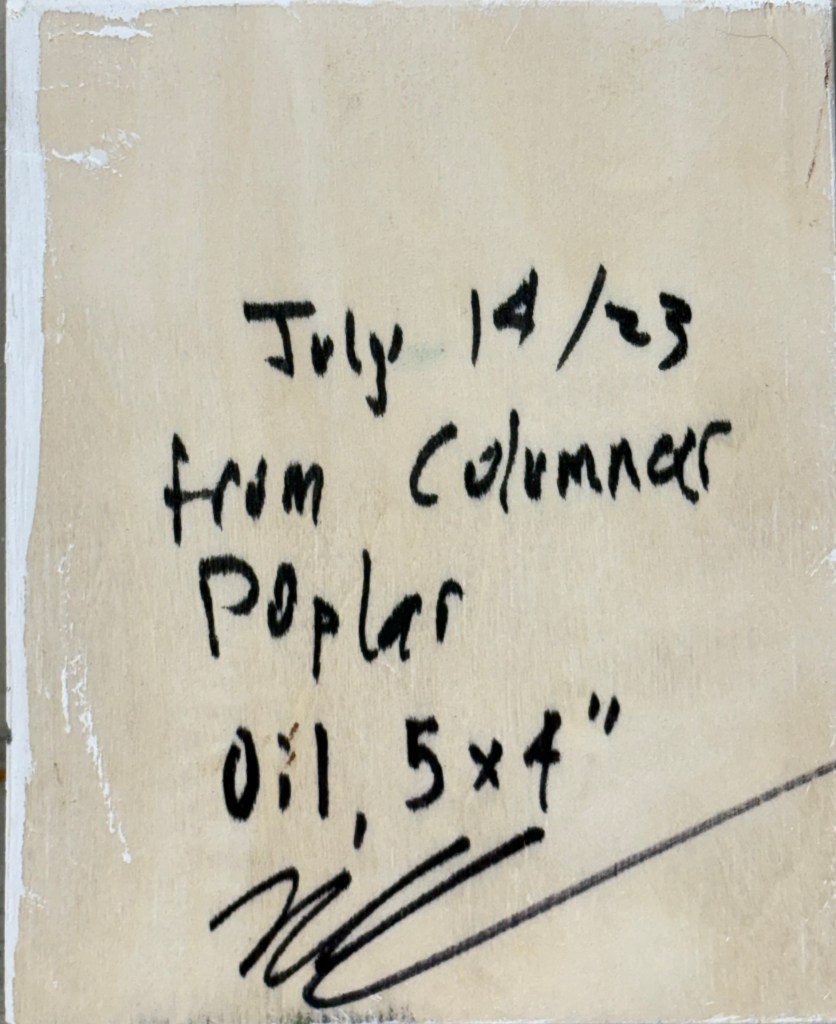 July 14/23
from Columnar
Poplar
Oil, 5x4"